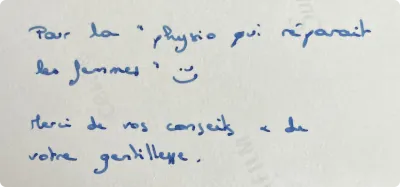 Pour la "physio qui réparait
les femmes" :)
Merci de vos conseils & de
votre gentillesse.